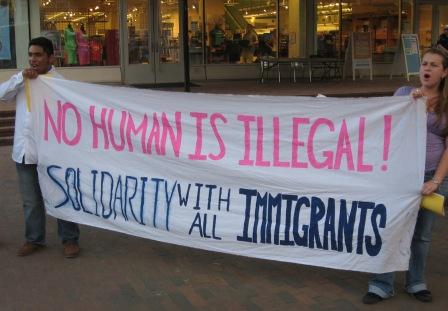 NO HUMAN IS ILLEGAL!
SOLIDARITY WITH ALL IMMIGRANTS